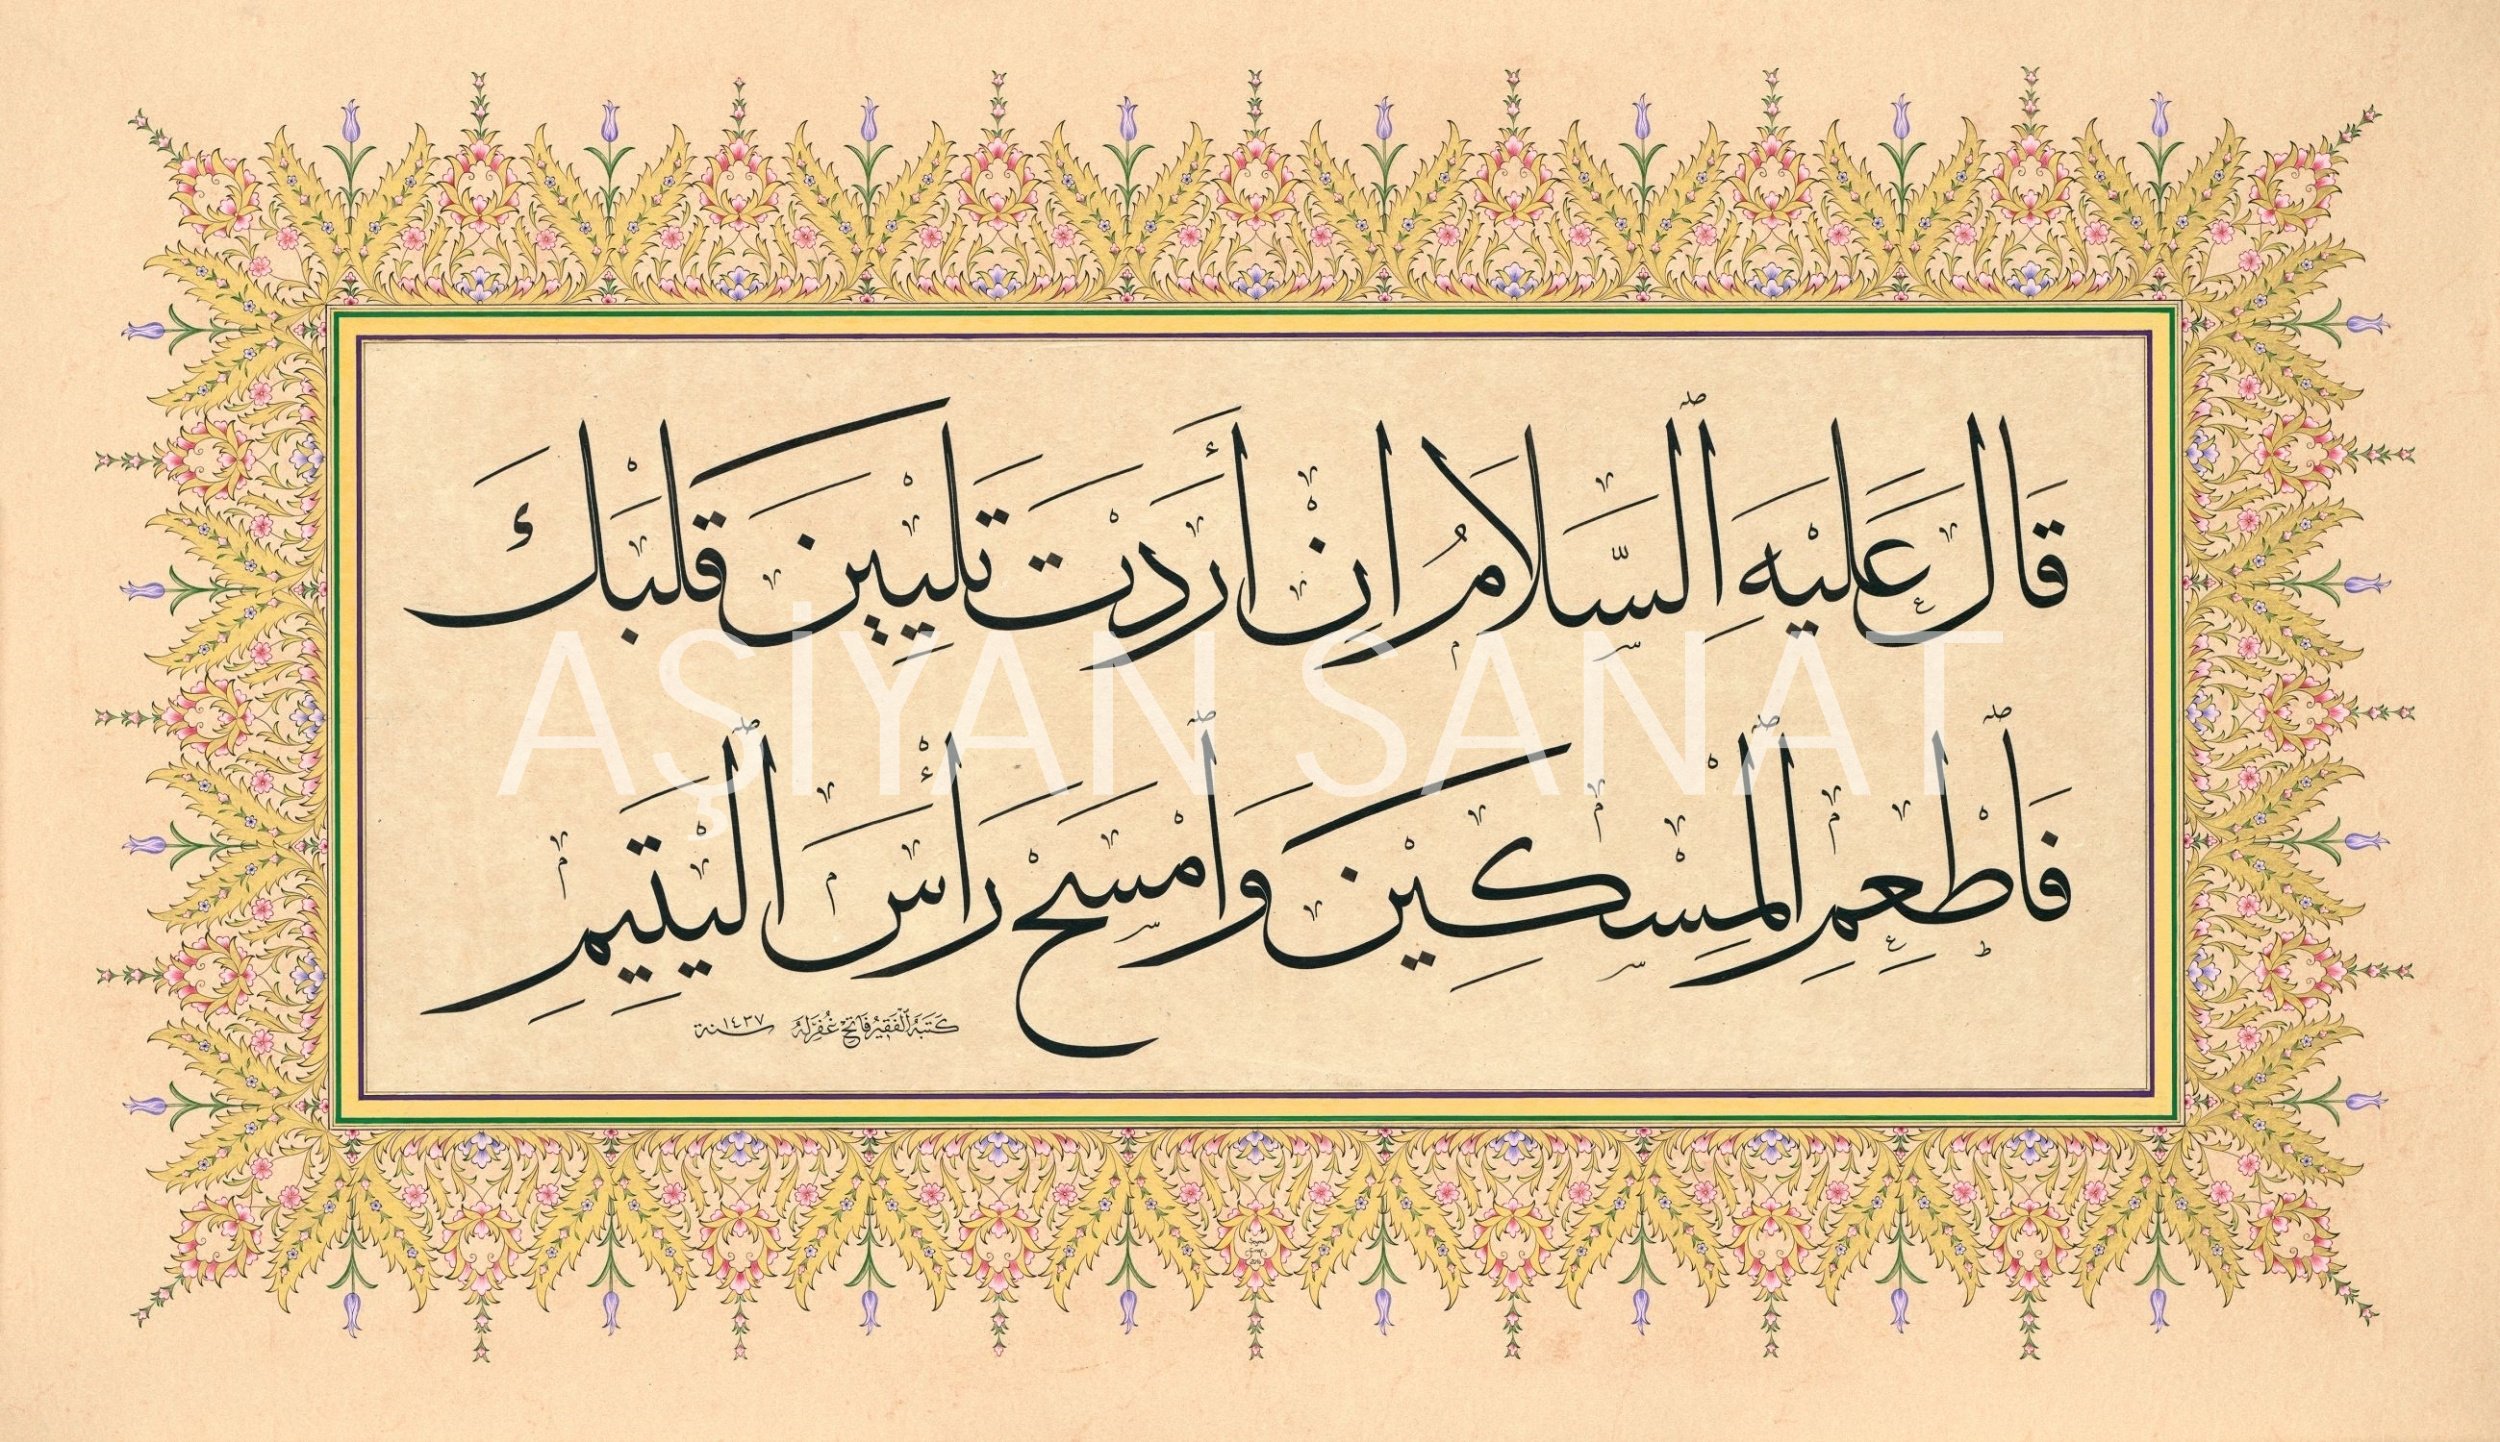 قَالَ عَلَيْهِ ٱلسَّلَامُ اِنْ أَرَدْتَ تَلْيِينَ قَلْبَكَ
فَٱطْعِمِ ٱلْمِسْكِينَ وَٱمْسَحْ رَأْسَ ٱلْيَتِيمِ
كَتَبَهُ ٱلْفَقِيرُ فَاتِحْ غُفِرَ لَهُ سنة ١٤٣٧
AŞİYAN SANAT